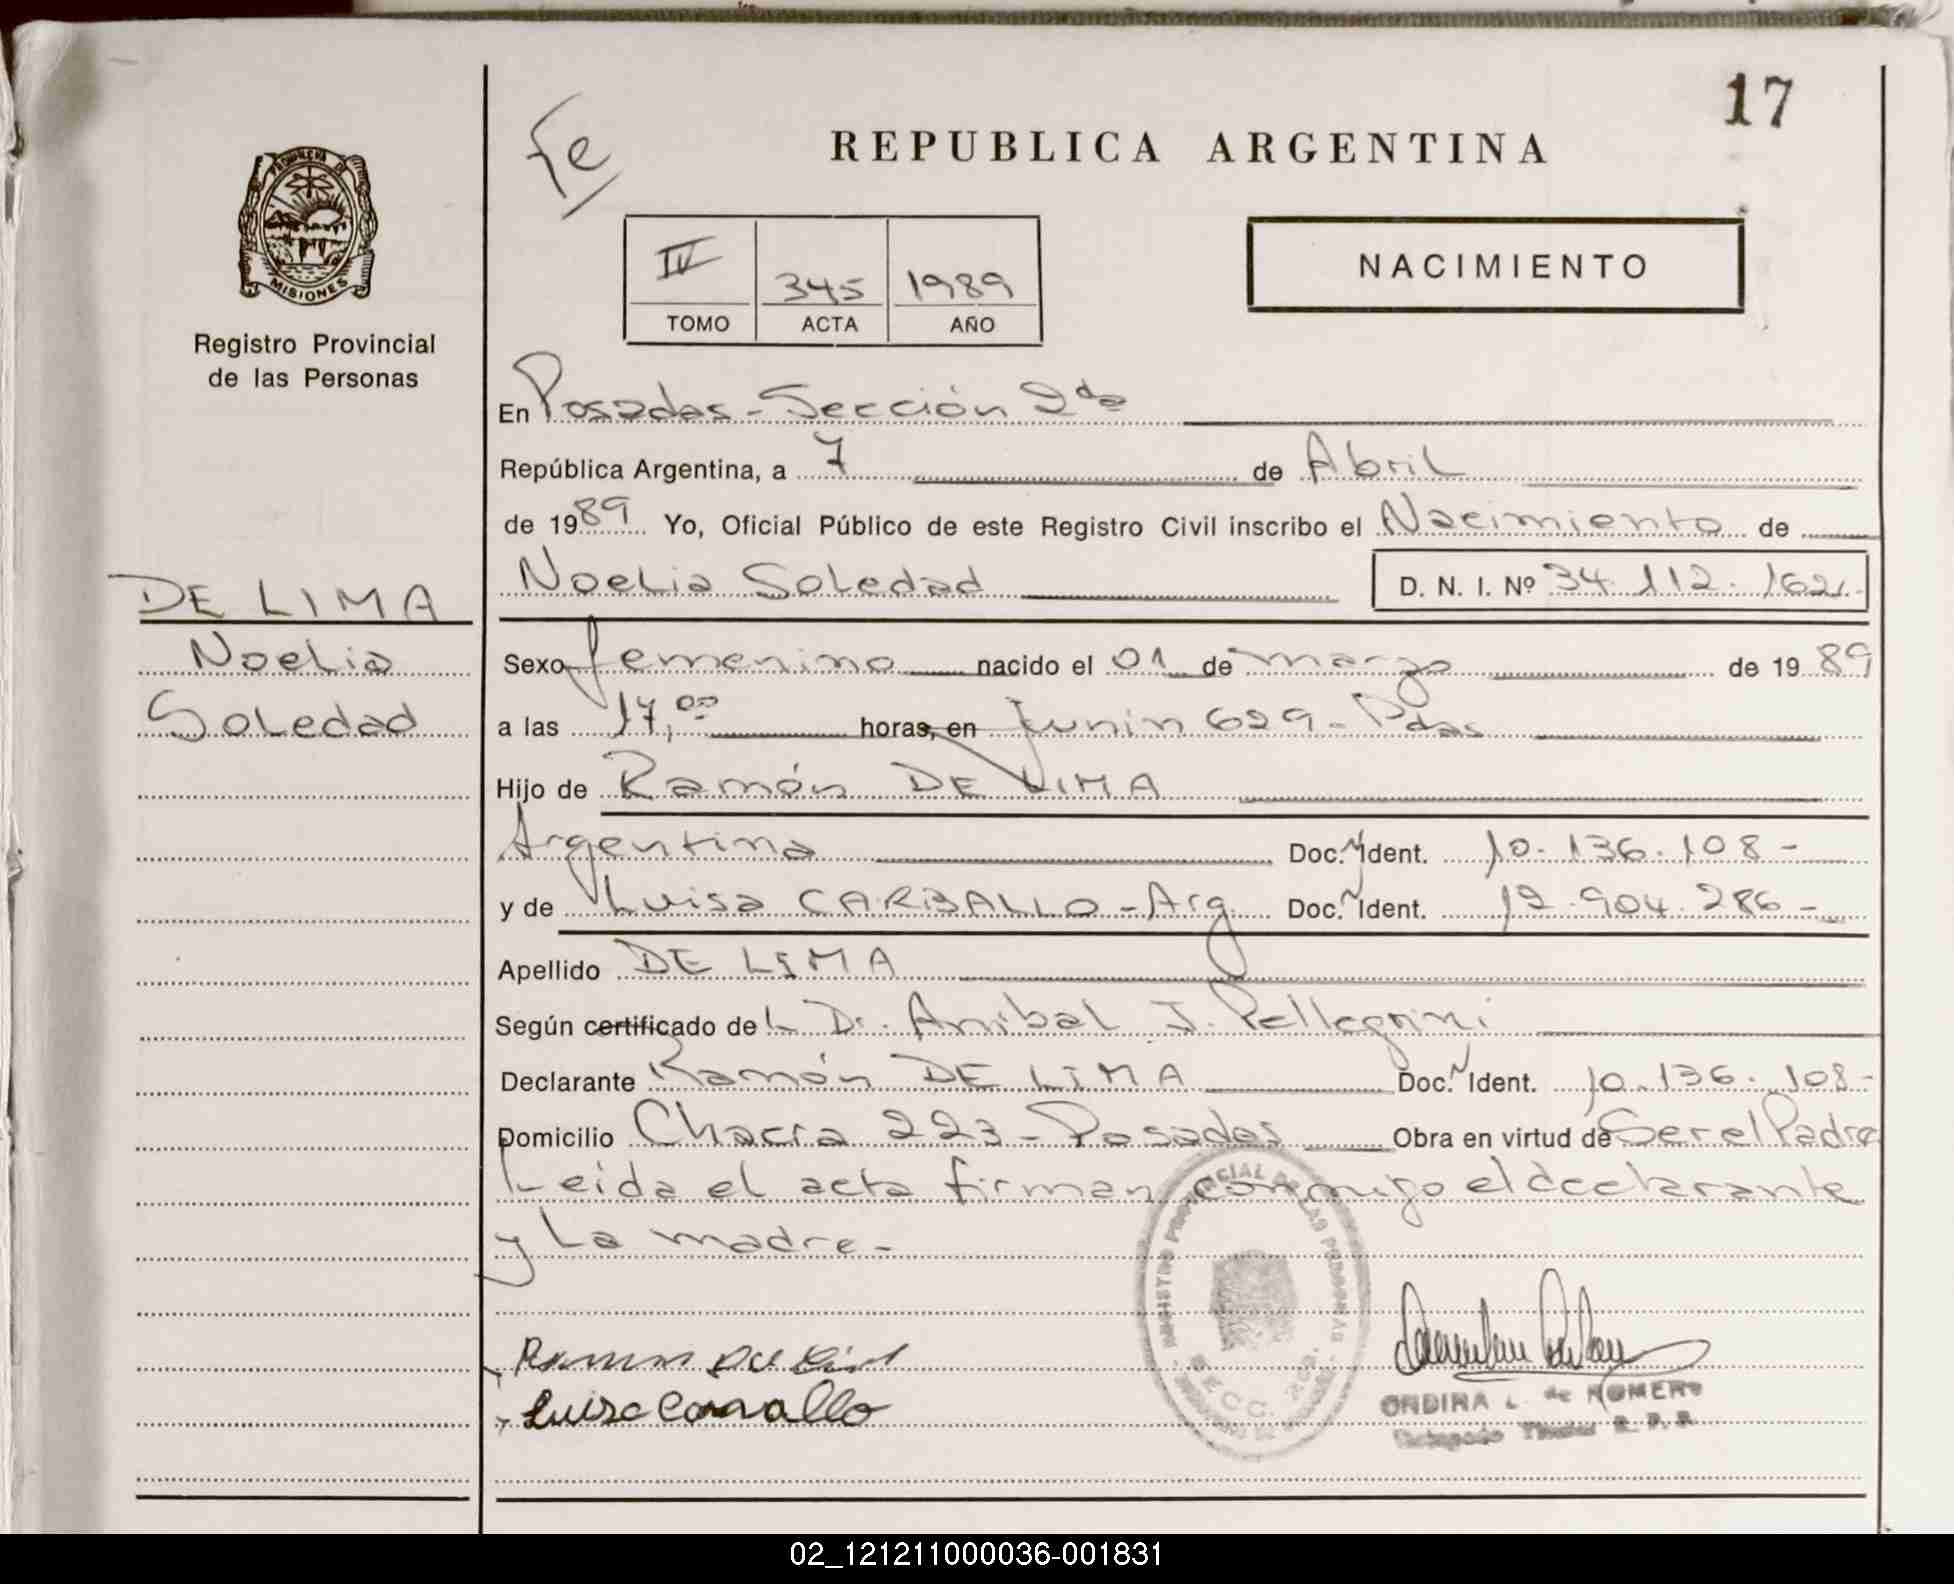 17
Fe
REPUBLICA ARGENTINA
PROVINCIA DE
MISIONES
Registro Provincial
de las Personas
IV 345 1989
TOMO ACTA AÑO
NACIMIENTO
En Posadas - Sección 2da
República Argentina, a 7 de Abril
de 1989 Yo, Oficial Público de este Registro Civil inscribo el Nacimiento de
Noelia Soledad D. N. I. Nº 34.112.162.-
DE LIMA
Noelia
Soledad
Sexo femenino nacido el 01 de marzo de 1989
a las 17,00 horas, en Junin 629 - Pdas
Hijo de Ramón DE LIMA
Argentina Doc. Ident. 10.136.108 -
y de Luisa CARBALLO - Arg. Doc. Ident. 12.904.286 -
Apellido DE LIMA
Según certificado del Dr. Anibal J. Pellegrini
Declarante Ramón DE LIMA Doc. Ident. 10.136.108 -
Domicilio Chacra 223 - Posadas Obra en virtud de Ser el Padre
Leida el acta firman conmigo el declarante
y La madre -
REGISTRO PROVINCIAL DE LAS PERSONAS
SECC. 2da.
Luisa Carvallo
ONDINA L. de ROMERO
Titular R. P. P.
02_121211000036-001831